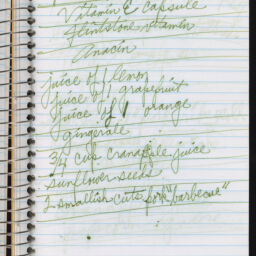 Vitamin E capsule
Flintstone vitamin
Anacin
juice of 1 lemon
juice of 1 grapefruit
juice of 1 orange
gingerale
3/4 cup cranapple juice
sunflower seeds
2 smallish cuts pork "barbecue"